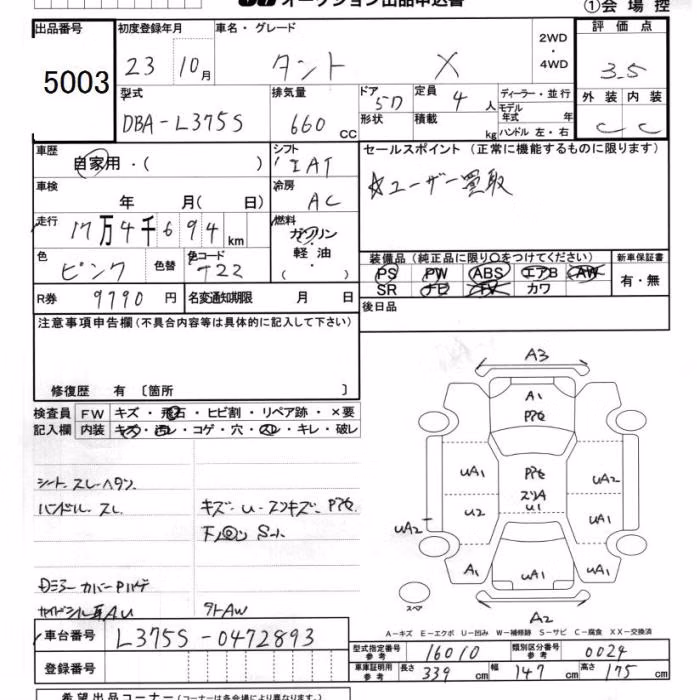 オークション出品申込書 ①会場控
出品番号 初度登録年月 車名・グレード 2WD・4WD 評価点
5003 23 10月 タント X 3.5
型式 排気量 ドア 5D 定員 4人 ディーラー・並行 外装 内装
DBA-L375S 660cc 形状 積載 kg モデル年式 年 ハンドル 左・右 C C
車歴 自家用・( ) シフト IAT セールスポイント (正常に機能するものに限ります)
車検 年 月(日) 冷房 AC ☆ユーザー買取
走行 17万4千694km 燃料 ガソリン・軽油・( )
色 ピンク 色替 色コード T22
装備品 (純正品に限り○をつけてください) 新車保証書
PS PW ABS エアB AW 有・無
SR ナビ TV カワ
R券 9790円 名変通知期限 月 日 後日品
注意事項申告欄(不具合内容等は具体的に記入して下さい)
修復歴 有 〔箇所 〕
検査員記入欄 FW キズ・飛石・ヒビ割・リペア跡・×要
内装 キズ・汚レ・コゲ・穴・スレ・キレ・破レ
シート スレ・ヘタリ
ハンドル スレ
キズ・U・
A3
A1
UA1 UA2
U2 U1 UA1
UA2
A1 UA1 A1
スペア
A2
A-キズ E-エクボ U-凹み W-補修跡 S-サビ C-腐食 XX-交換済
車台番号 L375S-0472893
登録番号
型式指定番号 参考 16010 類別区分番号 参考 0024
車庫証明用 参考 長さ 339cm 幅 147cm 高さ 175cm
希望出品コーナー(コーナーは各会場により異なります。)